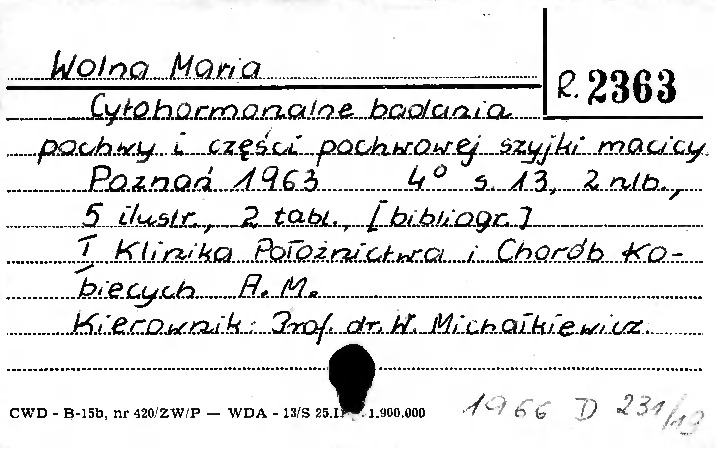 Wolna Maria
R. 2363
Cytohormonalne badania
pochwy i części pochwowej szyjki macicy.
Poznań 1963 4° s. 13, 2 nlb.,
5 ilustr., 2 tabl., [bibliogr.]
I Klinika Położnictwa i Chorób Ko-
biecych A.M.
Kierownik: Prof. dr. W. Michałkiewicz.
CWD - B-15b, nr 420/ZW/P — WDA - 13/S 25. 1.900.000
1966 D 231/19